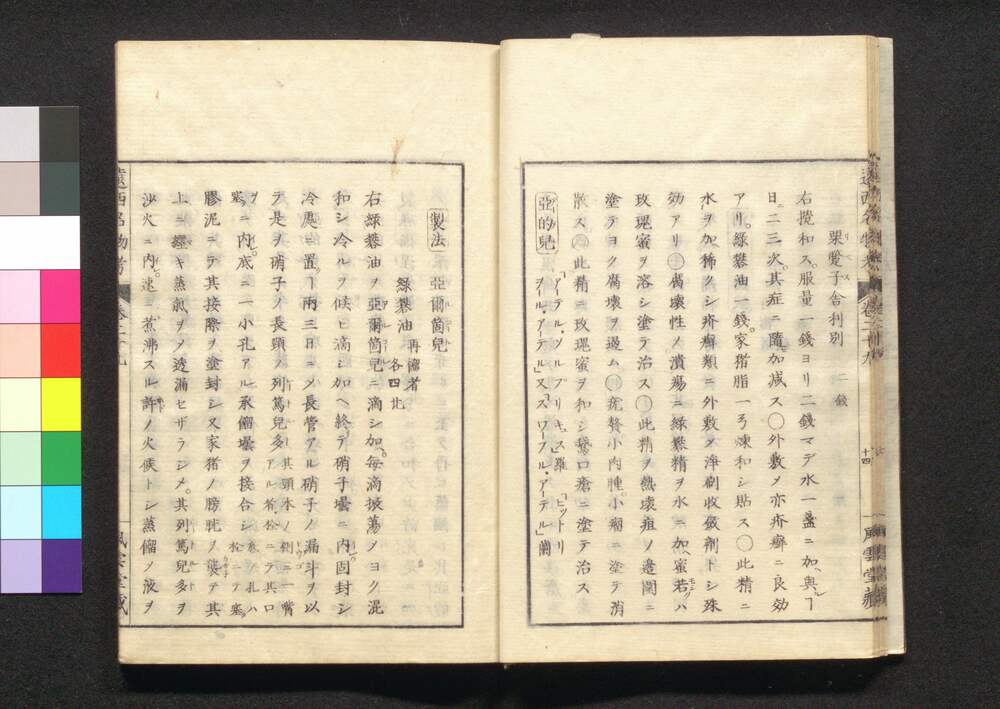 栗爱子舎利別 二錢
右攪和ス服量一錢ヨリ二錢マデ水一盞ニ加ヘ與フルヿ
日二三次其症ニ隨テ加減ス〇外敷メ亦疥癬ニ良効
アリ緑礬油一錢家猪脂一弓煉和シ貼ス〇此精ニ
水ヲ加ヘ稀クシ疥癬類ニ外敷ソ淨刷收斂劑トシ殊
効アリ〇腐壞性ノ潰瘍ニ緑礬精ヲ水ニ加ヘ蜜若クハ
玫瑰蜜ヲ溶シ塗テ治ス〇此精ヲ熱壞疽ノ邊圍ニ
塗テヨク腐壞ヲ遏ム〇疣贅小肉腫小瘤ニ塗テ消
散ス〇此精ニ玫瑰蜜ヲ和シ鵞口瘡ニ塗テ治ス
亞的兒 「アイテル、ヴルフリキュス」羅 「ヒットリ
ヲール、アーテル」又「スワーフル、アーテル」蘭
製法 亞爾箇兒
緑礬油 再餾者 各四比
右緑礬油ヲ亞爾箇兒ニ滴シ加ヘ毎滴振蕩ソヨク混
和シ冷ルヲ候ヒ滴シ加ヘ終テ硝子壜ニ内レ固封シ
冷處ニ置ヿ兩三日ニソ長管アル硝子ノ漏斗ヲ以
テ是ヲ硝子ノ長頸ノ列篤兒多 其頭本ノ側ニ一嘴アル者松ニテ其口ヲ塞ク ニ内レ底ニ一小孔アル承餾壜ヲ接合シ
膠泥ニテ其接際ヲ塗封シ又家猪ノ膀胱ヲ襲テ其
上ニ纏キ蒸氣ヲソ透漏セザラシメ其列篤兒多ヲ
沙火ニ内レ速ニ煮沸スル許ノ火候トシ蒸餾ノ液ヲ
遠西名物考 卷二十九
十四
風雲堂藏